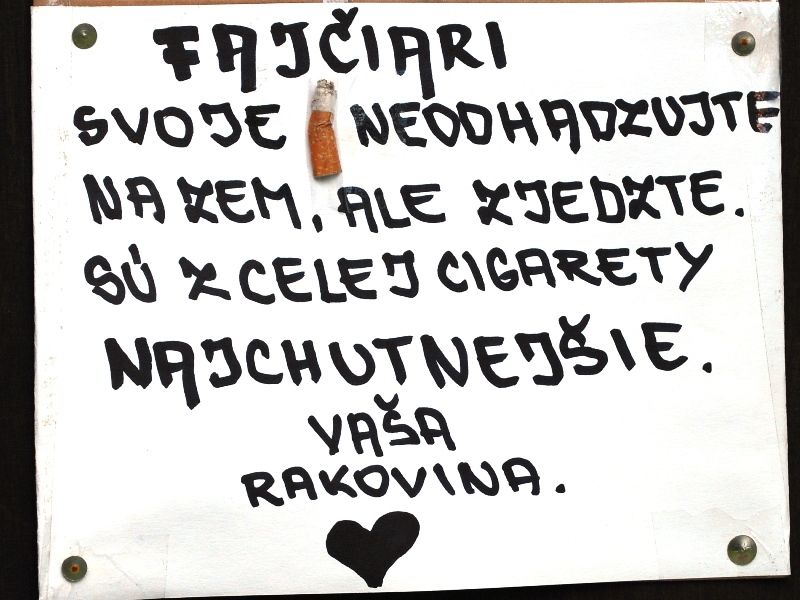 FAJČIARI
SVOJE NEODHADZUJTE
NA ZEM, ALE ZJEDZTE.
SÚ Z CELEJ CIGARETY
NAJCHUTNEJŠIE.
VAŠA
RAKOVINA.